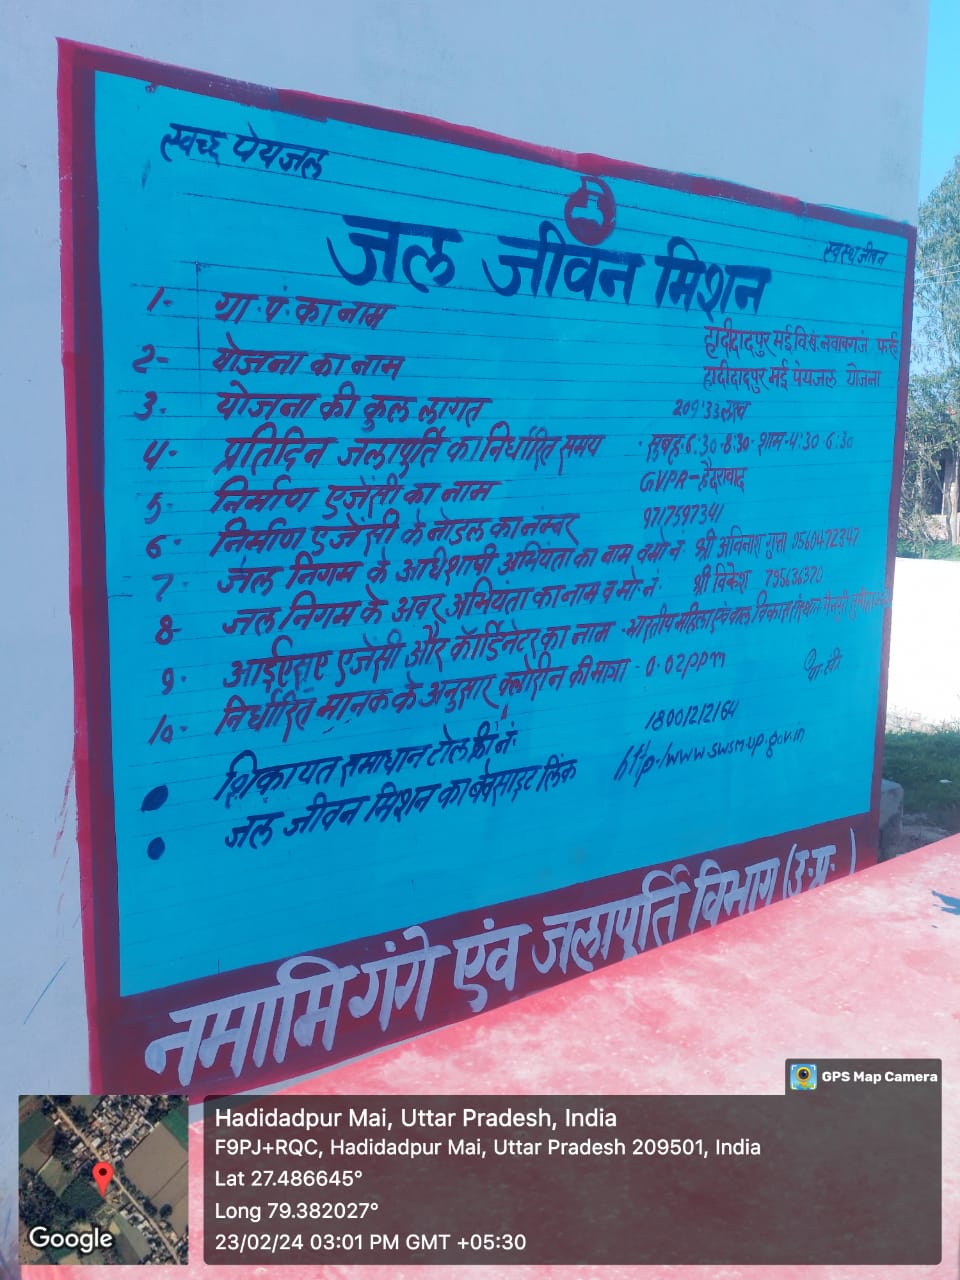 स्वच्छ पेयजल
स्वस्थ जीवन
जल जीवन मिशन
1- ग्रा.पं. का नाम हादीदादपुर मई वि.ख. नवाबगंज फर्रु
2- योजना का नाम हादीदादपुर मई पेयजल योजना
3. योजना की कुल लागत 209.33 लाख
4- प्रतिदिन जलापूर्ति का निर्धारित समय · सुबह-6:30-8:30-शाम-4:30-6:30
5- निर्माण एजेंसी का नाम GVPR-हैदराबाद
6- निर्माण एजेंसी के नोडल का नम्बर 9717597341
7- जल निगम के अधिशाषी अभियंता का नाम व मो नं श्री अविनाश गुप्ता 9560472347
8- जल निगम के अवर अभियंता का नाम व मो. नं. श्री विकेश 795636370
9. आईएसए एजेंसी और कॉर्डिनेटर का नाम - भारतीय महिला एवं बाल विकास संस्थान
10- निर्धारित मानक के अनुसार क्लोरीन की मात्रा - 0.02ppm
• शिकायत समाधान टोल फ्री नं: 18001212164
• जल जीवन मिशन का बेवसाइट लिंक http-/www.swsm.up.gov.in
नमामि गंगे एंव जलापूर्ति विभाग (उ.प्र.)
GPS Map Camera
Hadidadpur Mai, Uttar Pradesh, India
F9PJ+RQC, Hadidadpur Mai, Uttar Pradesh 209501, India
Lat 27.486645°
Long 79.382027°
23/02/24 03:01 PM GMT +05:30
Google